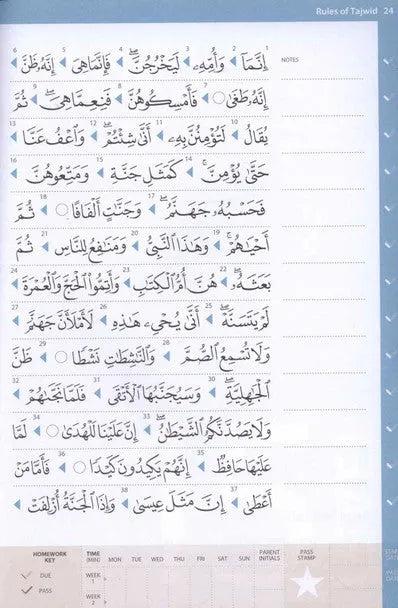 Rules of Tajwid 24
NOTES
1 إِنَّمَآ 2 وَأُمِّهِۦ 3 لَيَخْرُجُنَّ ۖ 4 فَإِنَّمَا هِىَ 5 إِنَّهُۥ ظَنَّ 6
إِنَّهُۥ طَغَىٰ 7 فَأَمْسِكُوهُنَّ 8 فَنِعِمَّا هِىَ ۖ 9 ثُمَّ
يُقَالُ 10 لَتُؤْمِنُنَّ بِهِۦ 11 أَنَّىٰ شِئْتُمْ ۖ 12 وَٱعْفُ عَنَّا 13
حَتَّىٰ يُؤْمِنَّ ۚ 14 كَمَثَلِ جَنَّةٍ 15 وَمَتِّعُوهُنَّ 16
فَحَسْبُهُۥ جَهَنَّمُ ۚ 17 وَجَنَّـٰتٍ أَلْفَافًا 18 ثُمَّ
أَحْيَـٰهُمْ ۚ 19 وَهَـٰذَا ٱلنَّبِىُّ 20 وَمَنَـٰفِعُ لِلنَّاسِ 21 ثُمَّ
بَعَثَهُۥ ۖ 22 هُنَّ أُمُّ ٱلْكِتَـٰبِ 23 وَأَتِمُّوا۟ ٱلْحَجَّ وَٱلْعُمْرَةَ 24
لَمْ يَتَسَنَّهْ ۖ 25 أَنَّىٰ يُحْىِۦ هَـٰذِهِ 26 لَأَمْلَأَنَّ جَهَنَّمَ 27
وَلَا تُسْمِعُ ٱلصُّمَّ 28 وَٱلنَّـٰشِطَـٰتِ نَشْطًا 29 ظَنَّ
ٱلْجَـٰهِلِيَّةِ ۖ 30 وَسَيُجَنَّبُهَا ٱلْأَتْقَى 31 فَلَمَّا نَجَّىٰهُمْ 32
وَلَا يَصُدَّنَّكُمُ ٱلشَّيْطَـٰنُ ۖ 33 إِنَّ عَلَيْنَا لَلْهُدَىٰ 34 لَمَّا
عَلَيْهَا حَافِظٌ 35 إِنَّهُمْ يَكِيدُونَ كَيْدًا 36 فَأَمَّا مَنْ
أَعْطَىٰ 37 إِنَّ مَثَلَ عِيسَىٰ 38 وَإِذَا ٱلْجَنَّةُ أُزْلِفَتْ
HOMEWORK KEY TIME (MIN) MON TUE WED THU FRI SAT SUN PARENT INITIALS PASS STAMP
DUE WEEK 1
PASS WEEK 2